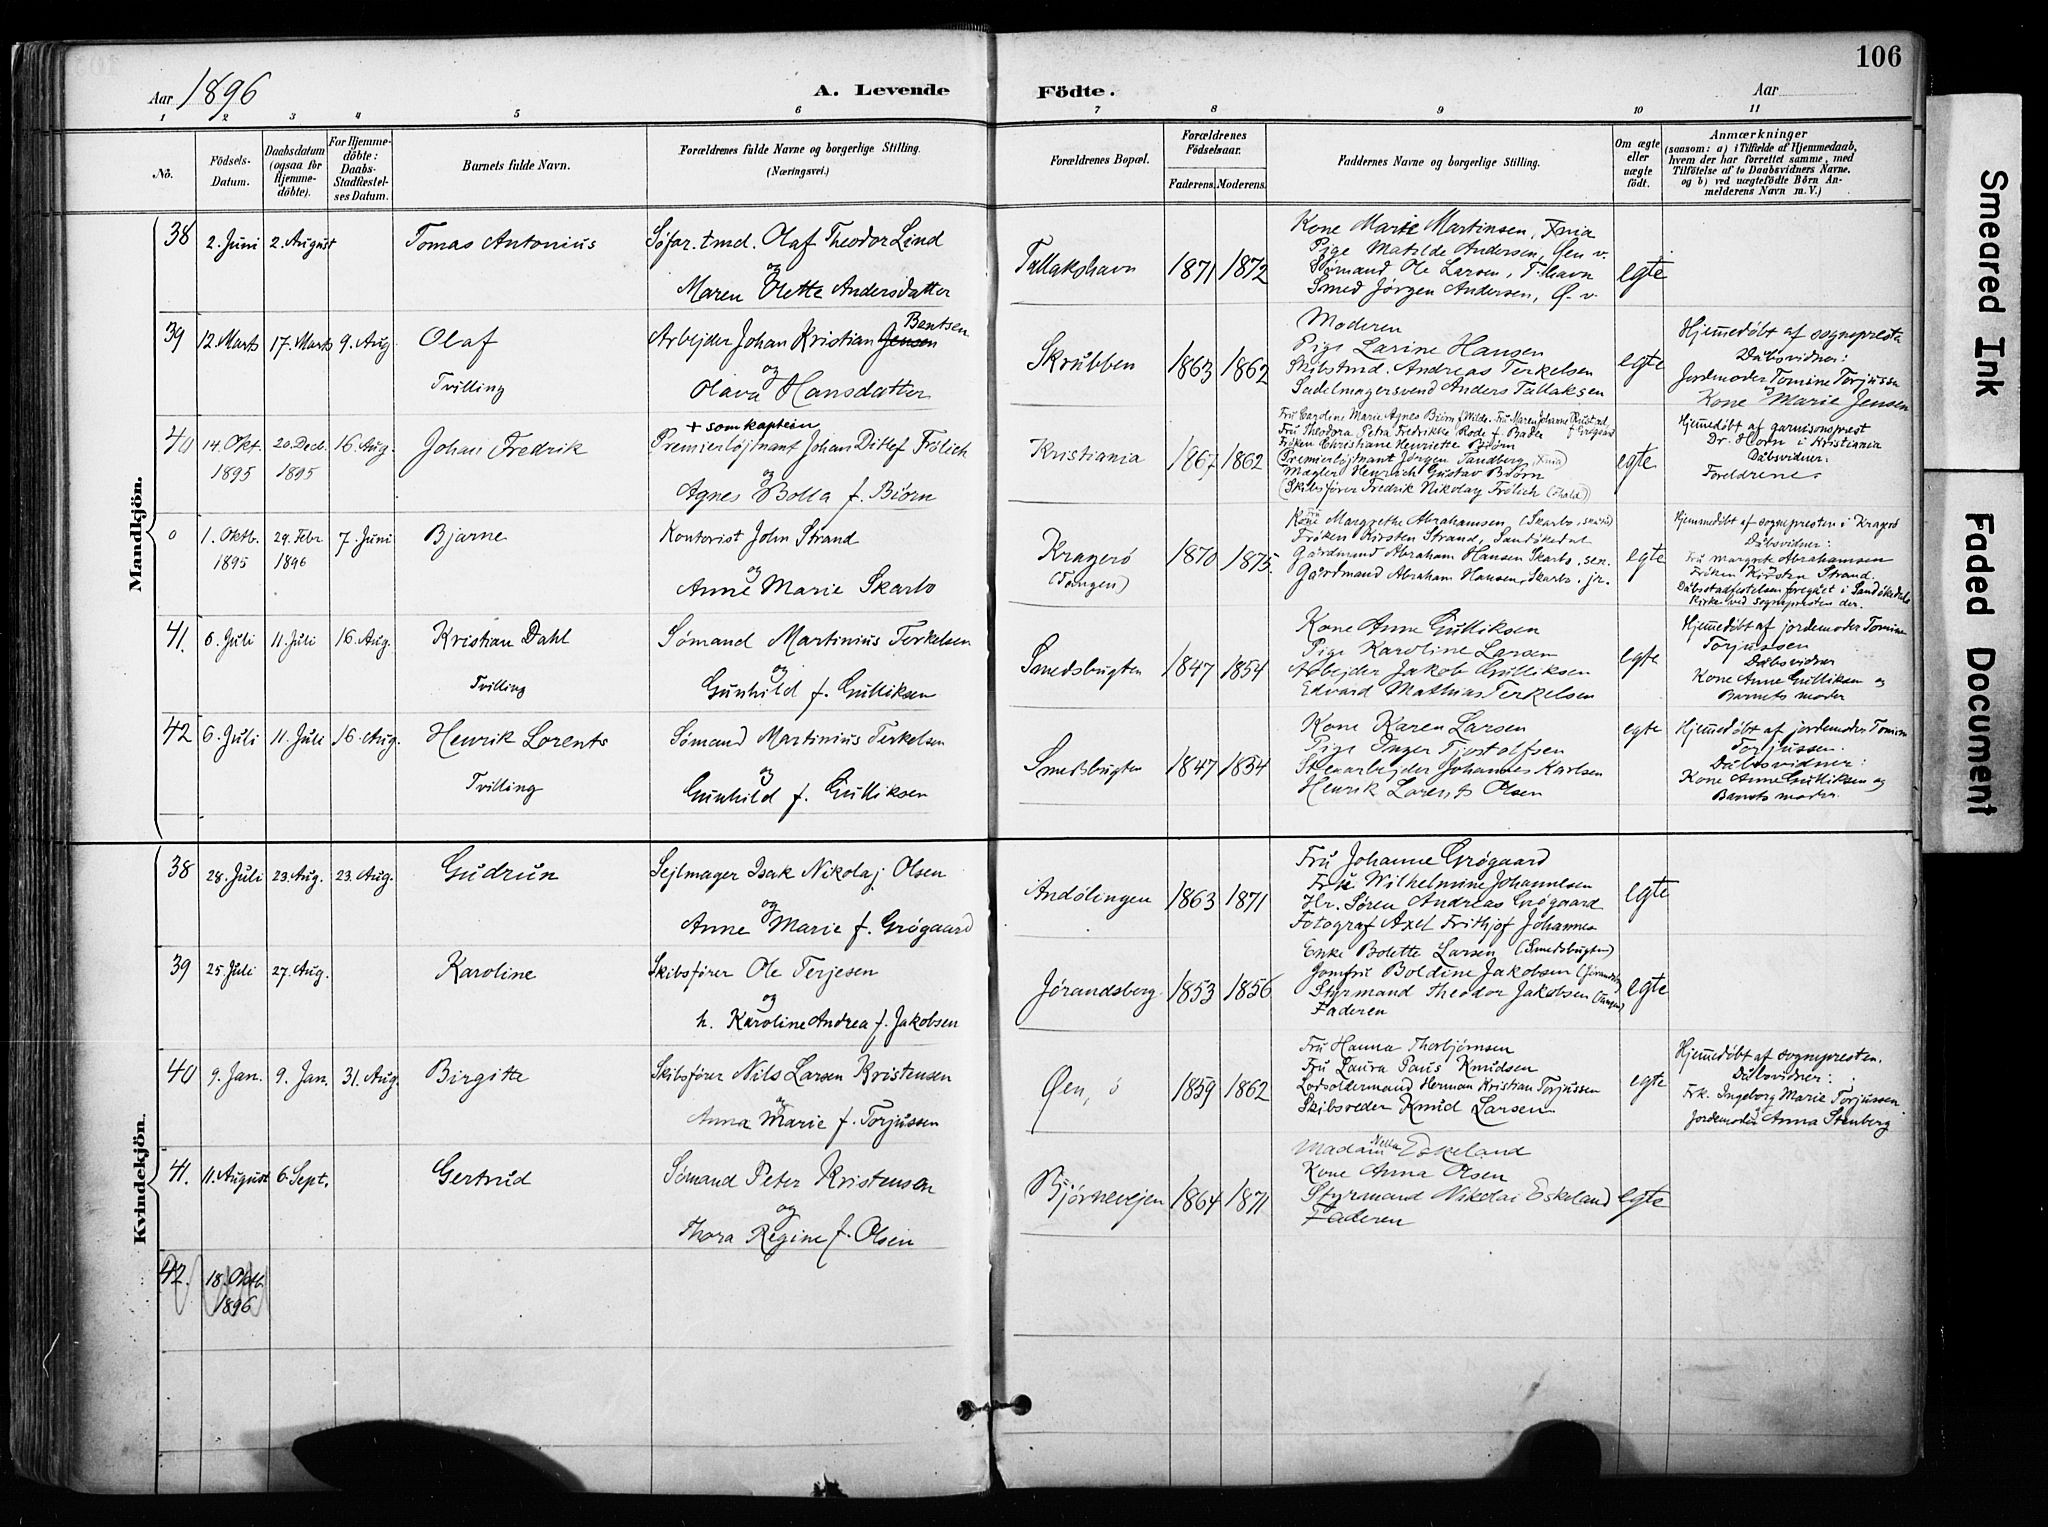 106
Aar 1896 A. Levende Födte. Aar
1 2 3 4 5 6 7 8 9 10 11
No.
Födsels-Datum.
Daabsdatum (ogsaa för Hjemme-döbte).
For Hjemme-döbte: Daabs-Stadfæstel-ses Datum.
Barnets fulde Navn.
Forældrenes fulde Navne og borgerlige Stilling.
(Næringsvei.)
Forældrenes Bopæl.
Forældrenes Födselsaar.
Faderens. Moderens.
Faddernes Navne og borgerlige Stilling.
Om ægte eller uægte födt.
Anmærkninger
(saasom: a) i Tilfælde af Hjemmedaab, hvem der har forrettet samme, med Tilföielse af to Daabsvidners Navne. og b) ved uægtefödte Börn An-melderens Navn m. V.)
Mandkjön.
38 2. Juni 2. August Tomas Antonius
Søfar. tmd. Olaf Theodor Lind
og
Maren Olette Andersdatter
Tallakshavn 1871 1872
Kone Marie Martinsen,
Pige Matilde Andersen, Øen v.
Sømand Ole Larsen, T. havn
Smed Jørgen Andersen, Ø. v.
egte
39 12. Marts 17. Marts 9. Aug Olaf
Tvilling
Bentsen
Arbejder Johan Kristian Jensen
og
Olava Hansdatter
Skrubben 1863 1862
Moderen
Pige Larine Hansen
Skibstmd. Andreas Terkelsen
Sadelmagersvend Anders Tallaksen
egte
Hjemmedøbt af sognepresten
Dåbsvidner:
Jordemoder Tomine Torjussen
og
Kone Marie Jensen
40 14. Okt. 1895 20. Dec. 1895 16. Aug. Johan Fredrik
+ som kaptein
Premierløjtnant Johan Ditlef Frölich
og
Agnes Bolla f. Biørn
Kristiania 1867 1862
Fru Caroline Marie Agnes Biørn f. Wilde. Fru Maren Johanne
Fru Theodora Petra Fredrikke Rode f. Bader f Grøgaard
Frøken Christiane Henriette Biørn
Premierløjtnant Jørgen Sandberg,
Mægler Henrich Gustav Biørn
(Skibsfører Fredrik Nikolay Frölich
egte
Hjemmedøbt af garnisonsprest
Dr. Horn i Kristiania
Dåbsvidner:
Foreldrene
0 1. Oktb. 1895 29. Febr 1896 7. Juni Bjarne
Kontorist John Strand
og
Anne Marie Skarbo
Kragerø
(Tangen)
1870 1875.
Fru
Kone Margrethe Abrahamsen (Skarbo,
Frøken Kirsten Strand, Sandøkedal
Gårdmand Abraham Hansen Skarbo, sen.
Gårdmand Abraham Hansen, Skarbo. jr.
egte
Hjemmedøbt af sognepresten i Kragerø
Dåbsvidner:
Fru Margrete Abrahamsen
Frøken Kirsten Strand.
Dåbsstadfestelsen foregået i Sandøkedals
Kirke ved sognepresten der.
41. 6. Juli 11. Juli 16. Aug. Kristian Dahl
Tvilling
Sømand Martinius Terkelsen
og
Gunhild f. Gulliksen
Smedsbugten 1847 1854
Kone Anne Gulliksen
Pige Karoline Larsen
Arbejder Jakob Gulliksen
Edvard Mathias Terkelsen
egte
Hjemmedøbt af jordemoder Tomine
Torjussen
Dåbsvidner
Kone Anne Gulliksen og
Barnets moder
42 6. Juli 11. Juli 16. Aug. Henrik Lorents
Tvilling
Sømand Martinius Terkelsen
og
Gunhild f. Gulliksen
Smedsbugten 1847 1854
Kone Karen Larsen
Pige Inger Tjostolfsen
Stenarbejder Johannes Karlsen
Henrik Lorents Olsen
egte
Hjemmedøbt af jordemoder Tomine
Torjussen.
Dåbsvidner:
Kone Anne Gulliksen og
Barnets moder.
Kvindekjön.
38 28. Juli 23. Aug. 23. Aug. Gudrun
Sejlmager Isak Nikolaj Olsen
og
Anne Marie f. Grøgaard
Andølingen 1863 1871
Fru Johanne Grøgaard
Fru Wilhelmine Johannesen
Hr. Søren Andreas Grøgaard
Fotograf Axel Frithjof Johannes
egte
39 25. Juli 27. Aug. Karoline
Skibsfører Ole Terjesen
og
h. Karoline Andrea f. Jakobsen
Jørandsberg 1853 1856
Enke Bolette Larsen (Smedsbugten)
Jomfru Boldine Jakobsen
Styrmand Theodor Jakobsen (Tangen)
Faderen
egte
40 9. Jan. 9. Jan. 31. Aug. Birgitte
Skibsfører Nils Larsen Kristensen
og
Anna Marie f. Torjussen
Øen, ö 1859 1862
Fru Hanna Thorbjørnsen
Fru Laura Paus Knudsen
Lodsoldermand Herman Kristian Torjussen
Skibsreder Knud Larsen
egte
Hjemmedøbt af sognepresten.
Dåbsvidner:
Frk. Ingeborg Marie Torjussen
og
Jordemoder Anna Stenberg
41. 11. August 6. Sept. Gertrud
Sømand Peter Kristensen
og
Thora Regine f. Olsen
Bjørnevejen 1864 1871
Madam Nella Eskeland
Kone Anna Olsen
Styrmand Nikolai Eskeland
Faderen
egte
42. 18. Oktb. 1896
Smeared Ink
Faded Document